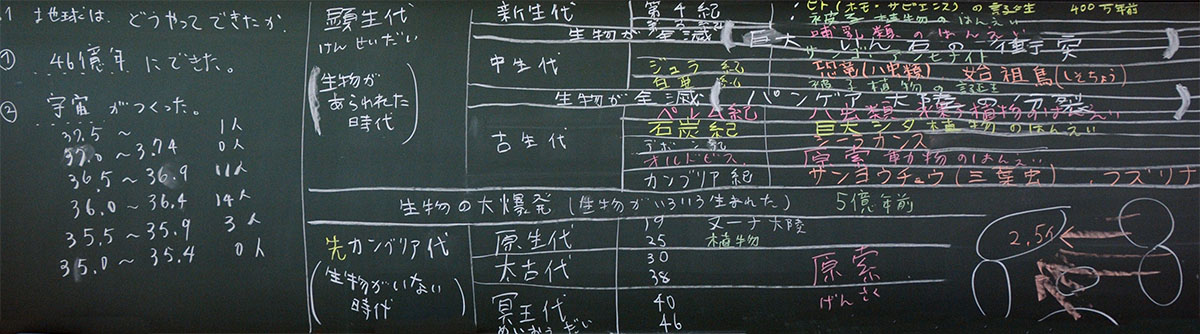 .1 地球は、どうやってできたか。
① 46億年 にできた。
② 宇宙 がつくった。
37.5 ~ 1人
37.0 ~ 37.4 0人
36.5 ~ 36.9 11人
36.0 ~ 36.4 14人
35.5 ~ 35.9 3人
35.0 ~ 35.4 0人
顕生代
けんせいだい
(生物が
あらわれた
時代)
新生代 第4紀 ヒト(ホモ・サピエンス)の誕生 400万年前
被子植物のはんえい
哺乳類のはんえい
生物が全滅 (巨大 いん石の衝突)
中生代 アンモナイト
ジュラ紀 恐竜(ハ虫類) 始祖鳥(しそちょう)
被子植物の誕生
生物が全滅 (パンゲア大陸の分裂)
古生代 ペルム紀 ハ虫類 裸子植物のはんえい
石炭紀 巨大シダ植物のはんえい
デボン紀 シーラカンス
オルドビス 原索動物のはんえい
カンブリア紀 サンヨウチュウ(三葉虫)、フズリナ
生物の大爆発 (生物がいろいろ生まれた) 5億年前
先カンブリア代
(生物がいない
時代)
原生代 19 ヌーナ大陸
25 植物
太古代 30
38
原索
げんさく
冥王代 40
めいおうだい 46
2.5億